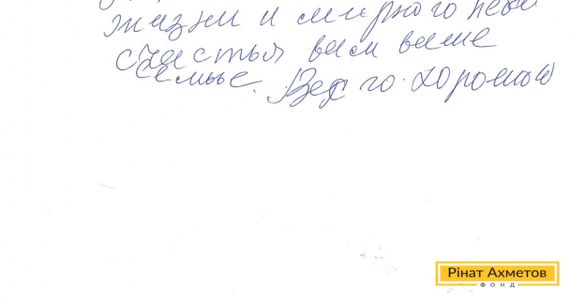 жизни и мирного неба
счастья вам ваше
семье. Всего хорошого
Рінат Ахметов
ФОНД